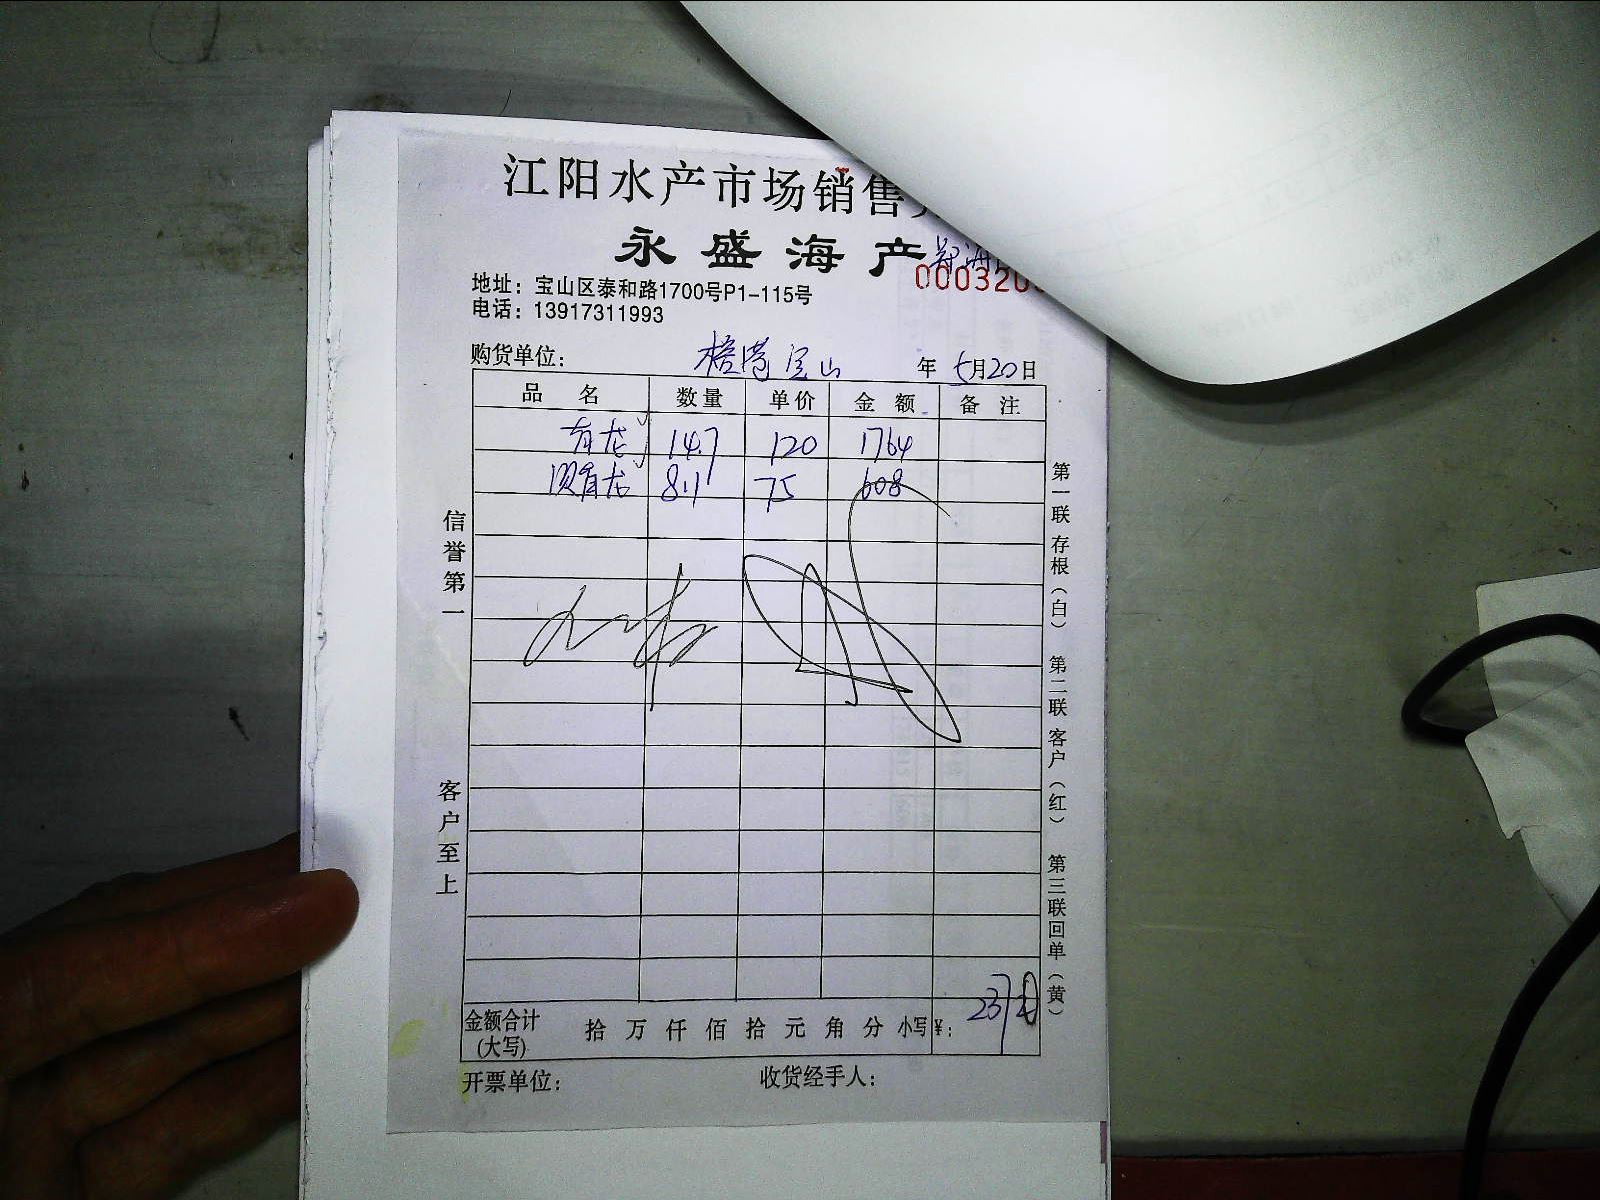 江阳水产市场销售
永盛海产
000320
地址：宝山区泰和路1700号P1-115号
电话：13917311993
购货单位： 宝山 年 5月20日
品名 数量 单价 金额 备注
青龙 14.7 120 1764
青龙 8.1 75 608
信誉第一
客户至上
第一联存根（白） 第二联客户（红） 第三联回单（黄）
金额合计(大写) 拾 万 仟 佰 拾 元 角 分 小写¥：
开票单位： 收货经手人：